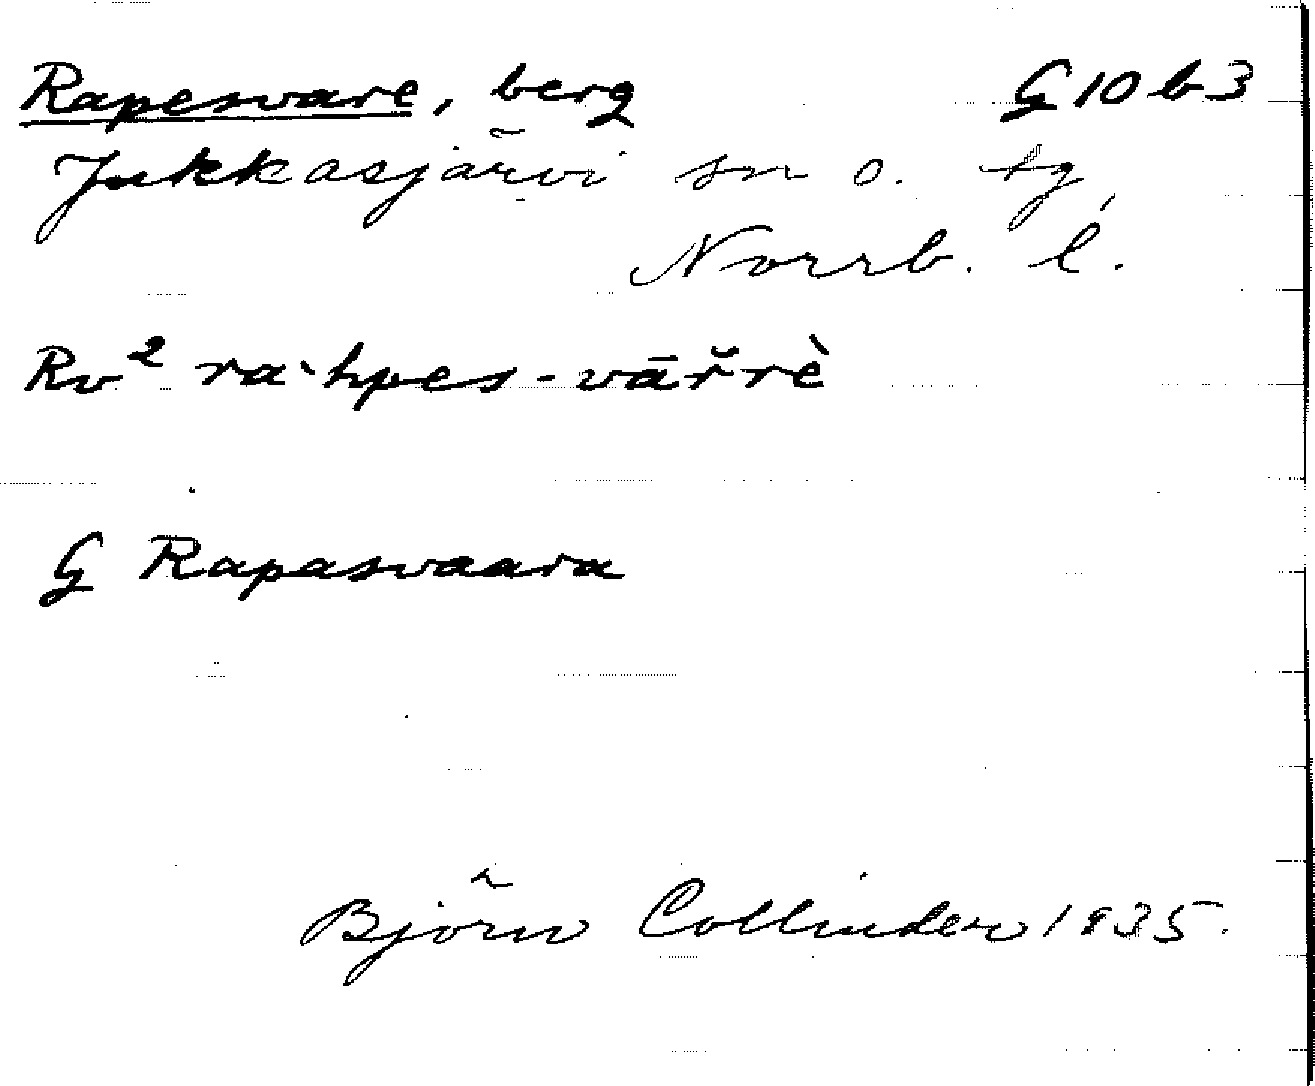 Rapesvare, berg G 10 b 3
Jukkasjärvi sn o. tg,
Norrb. l.
Rv² ra`hpes-vāřrè
G Rapasvaara
Björn Collinder 1935.